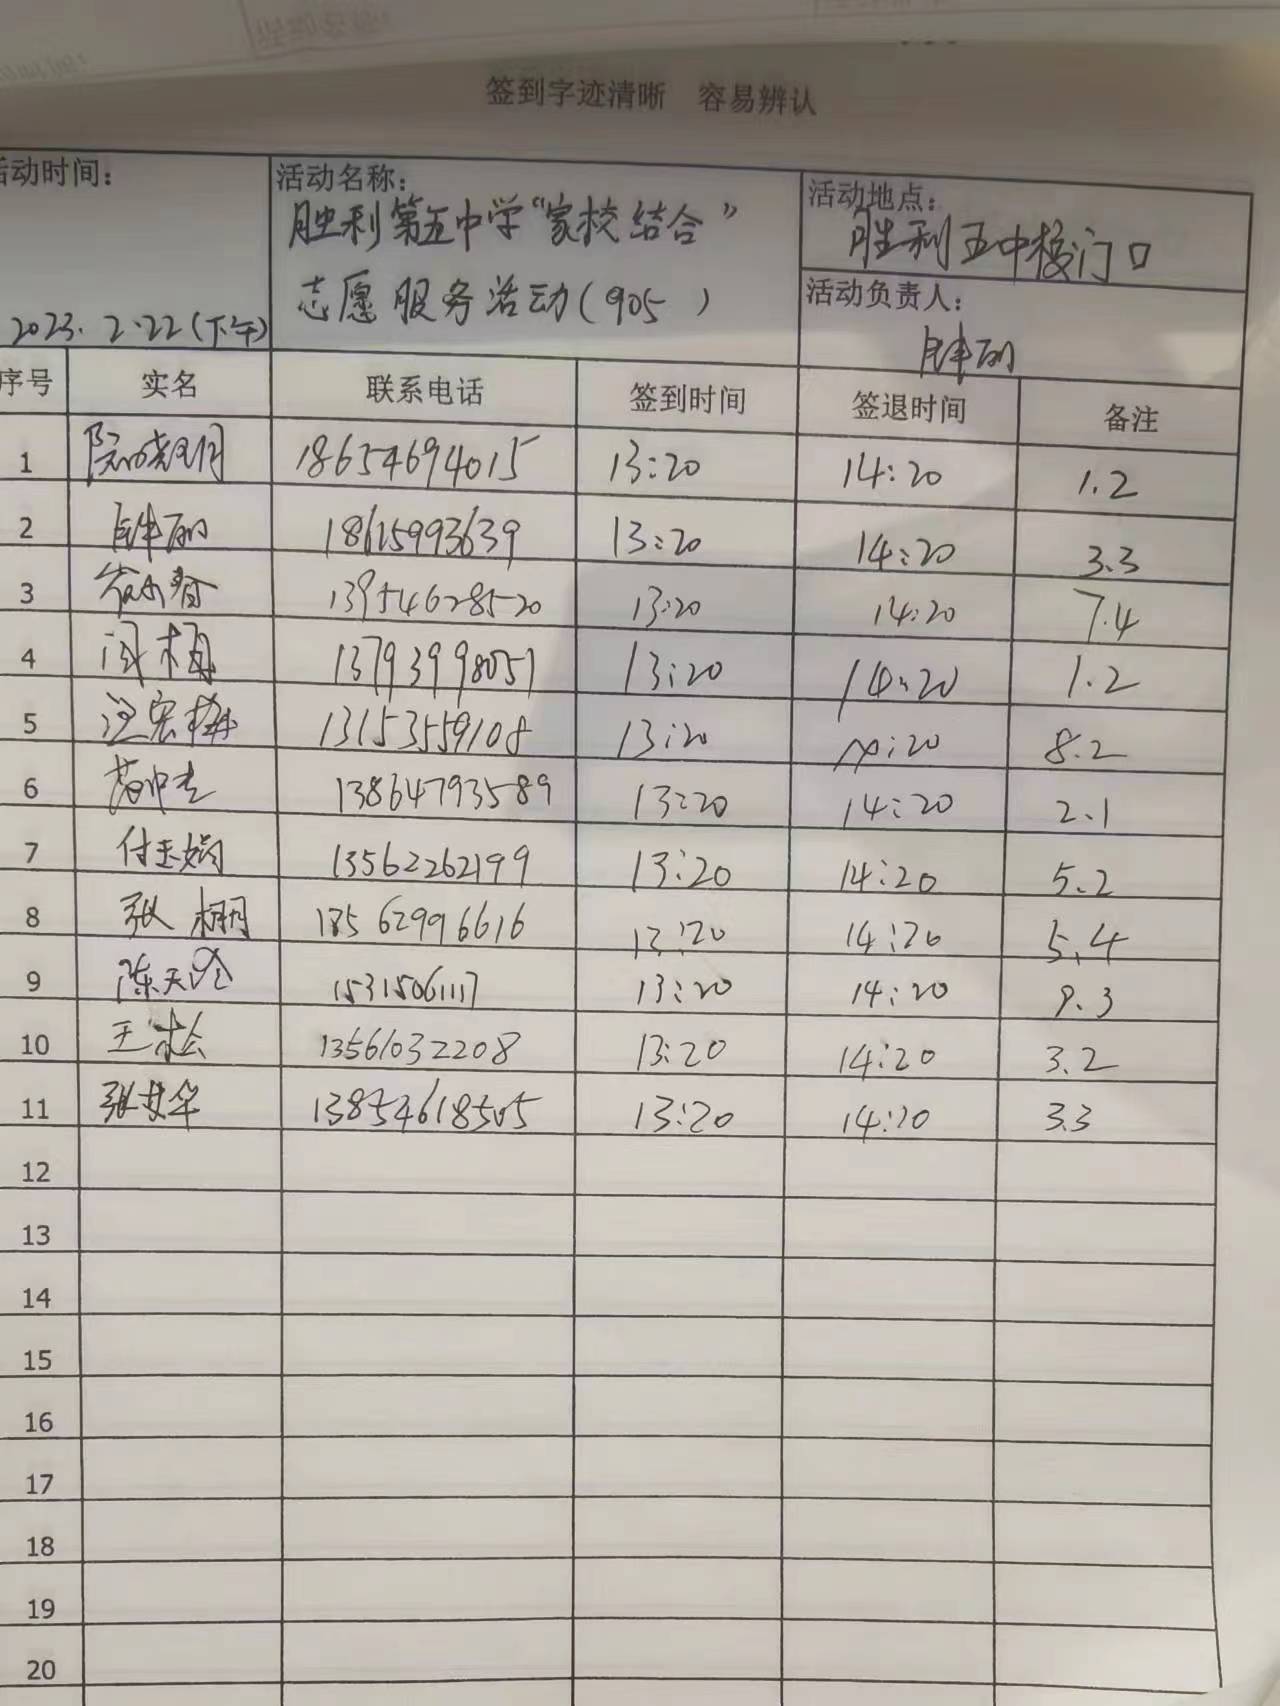 签到字迹清晰 容易辨认
活动时间：
2023.2.22(下午)
活动名称：
胜利第五中学“家校结合”
志愿服务活动(905 )
活动地点：
胜利五中校门口
活动负责人：
序号 实名 联系电话 签到时间 签退时间 备注
1 18654694015 13:20 14:20 1.2
2 18615993639 13:20 14:20 3.3
3 13954628520 13:20 14:20 7.4
4 13793998051 13:20 14:20 1.2
5 13153559108 13:20 :20 8.2
6 13864793589 13:20 14:20 2.1
7 付玉娟 13562262199 13:20 14:20 5.2
8 张栩 13:20 14:20 5.4
9 15315061117 13:20 14:20 9.3
10 王松 13561032208 13:20 14:20 3.2
11 13854618505 13:20 14:20 3.3
12
13
14
15
16
17
18
19
20